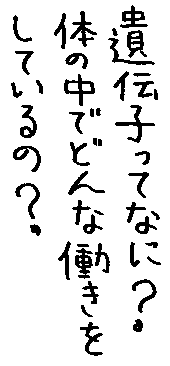 遺伝子ってなに？。
体の中でどんな働きを
しているの？。